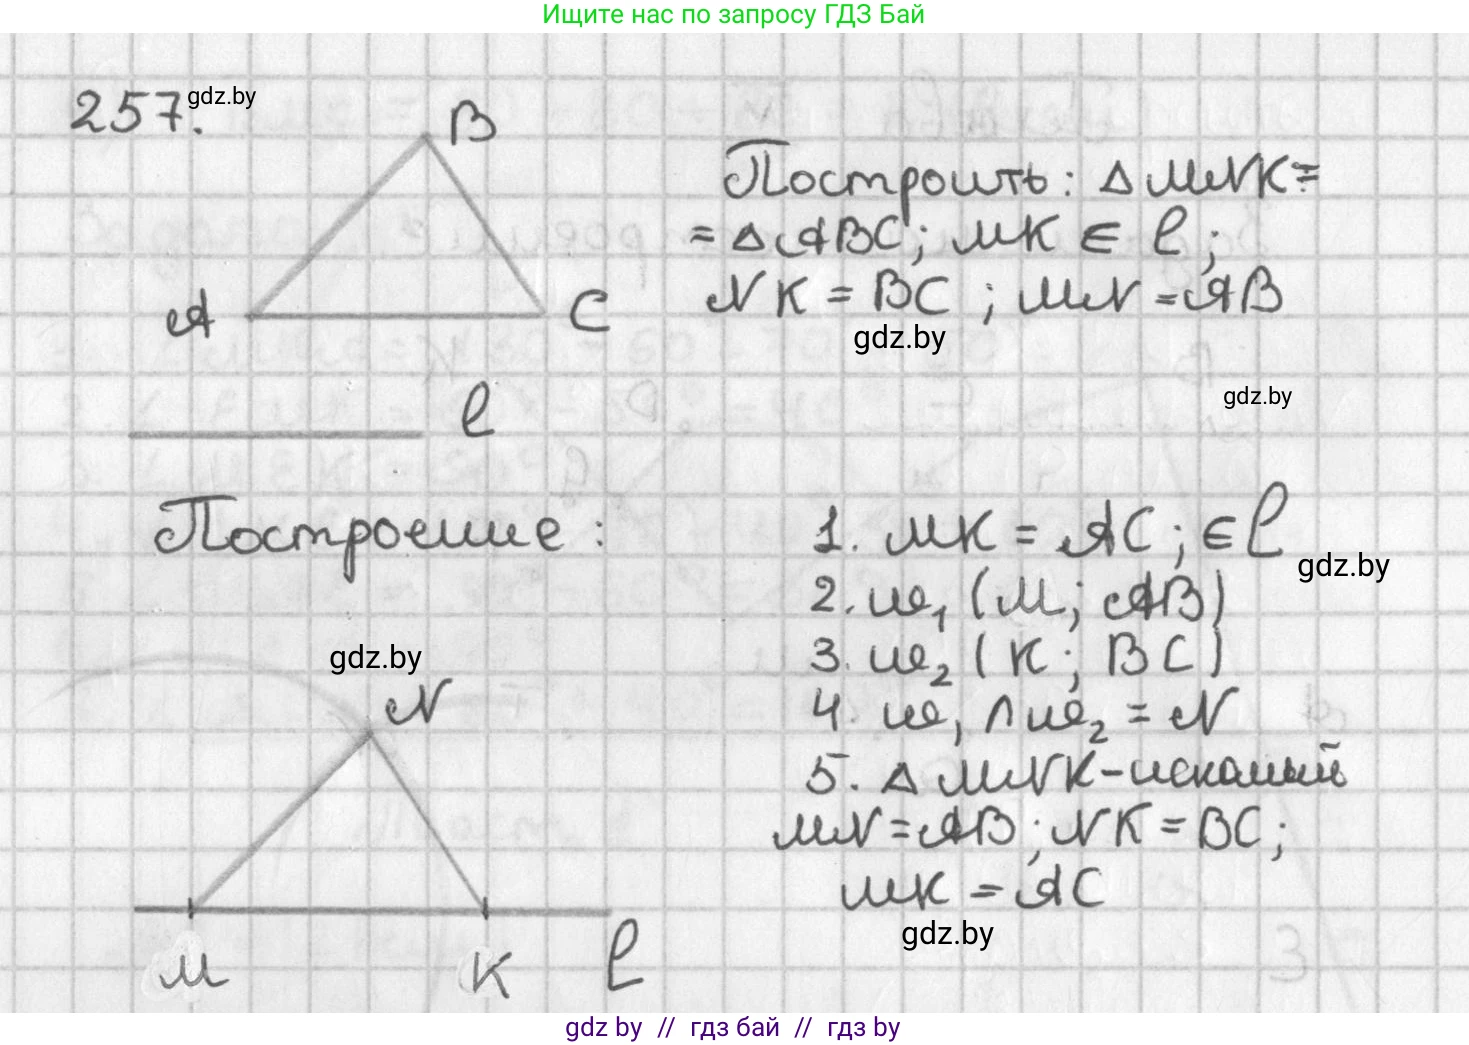 Ищите нас по запросу ГДЗ Бай
257.
gdz.by
B
A
C
Построить: △ MNK =
= △ ABC; MK ∈ l;
NK = BC ; MN = AB
gdz.by
gdz.by
l
Построение:
1. MK = AC; ∈ l
gdz.by
2. ω₁ (M; AB)
3. ω₂ (K; BC)
4. ω₁ ∩ ω₂ = N
5. △ MNK - искомый
MN = AB; NK = BC;
MK = AC
gdz.by
gdz.by
N
M
K
l
gdz by // гдз бай // гдз by